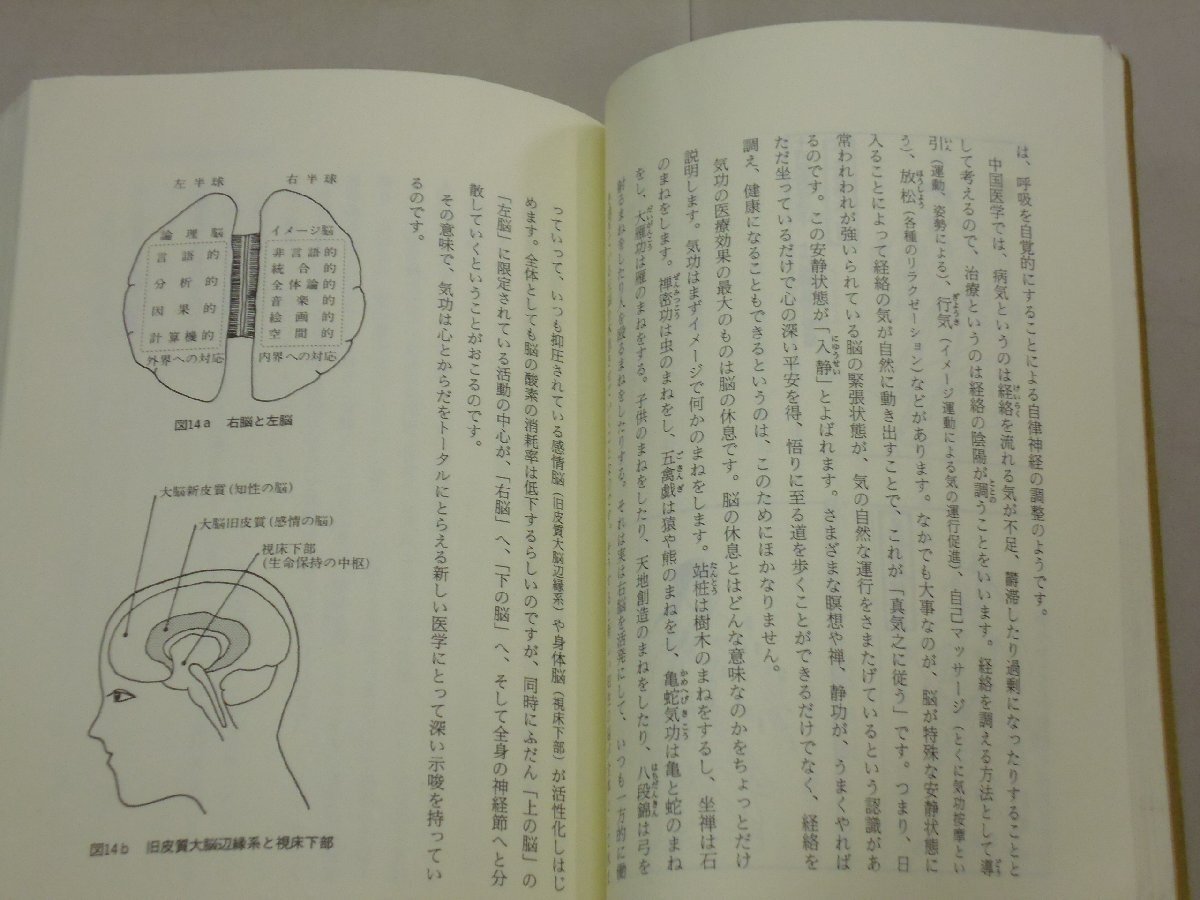 は、呼吸を自覚的にすることによる自律神経の調整のようです。
中国医学では、病気というのは経絡を流れる気が不足、欝滞したり過剰になったりすることと
して考えるので、治療というのは経絡の陰陽が調うことをいいます。経絡を調える方法として導
引（運動、姿勢による）、行気（イメージ運動による気の運行促進）、自己マッサージ（とくに気功按摩とい
う）、放松（各種のリラクゼーション）などがあります。なかでも大事なのが、脳が特殊な安静状態に
入ることによって経絡の気が自然に動き出すことで、これが「真気之に従う」です。つまり、日
常われわれが強いられている脳の緊張状態が、気の自然な運行をさまたげているという認識があ
るのです。この安静状態が「入静」とよばれます。さまざまな瞑想や禅、静功が、うまくやれば
ただ坐っているだけで心の深い平安を得、悟りに至る道を歩くことができるだけでなく、経絡を
調え、健康になることもできるというのは、このためにほかなりません。
気功の医療効果の最大のものは脳の休息です。脳の休息とはどんな意味なのかをちょっとだけ
説明します。気功はまずイメージで何かのまねをします。站桩は樹木のまねをするし、坐禅は石
のまねをします。禅密功は虫のまねをし、五禽戯は猿や熊のまねをし、亀蛇気功は亀と蛇のまね
をし、大雁功は雁のまねをする。子供のまねをしたり、天地創造のまねをしたり、八段錦は弓を
射るまねをしたり人を殴るまねをしたりする。それは実は右脳を活発にして、いつも一方的に働
左半球
右半球
論理脳
言語的
分析的
因果的
計算機的
外界への対応
イメージ脳
非言語的
統合的
全体論的
音楽的
絵画的
空間的
内界への対応
図14a 右脳と左脳
大脳新皮質（知性の脳）
大脳旧皮質（感情の脳）
視床下部
（生命保持の中枢）
図14b 旧皮質大脳辺縁系と視床下部
っていって、いつも抑圧されている感情脳（旧皮質大脳辺縁系）や身体脳（視床下部）が活性化しはじ
めます。全体としても脳の酸素の消耗率は低下するらしいのですが、同時にふだん「上の脳」の
「左脳」に限定されている活動の中心が、「右脳」へ、「下の脳」へ、そして全身の神経節へと分
散していくということがおこるのです。
その意味で、気功は心とからだをトータルにとらえる新しい医学にとって深い示唆を持ってい
るのです。